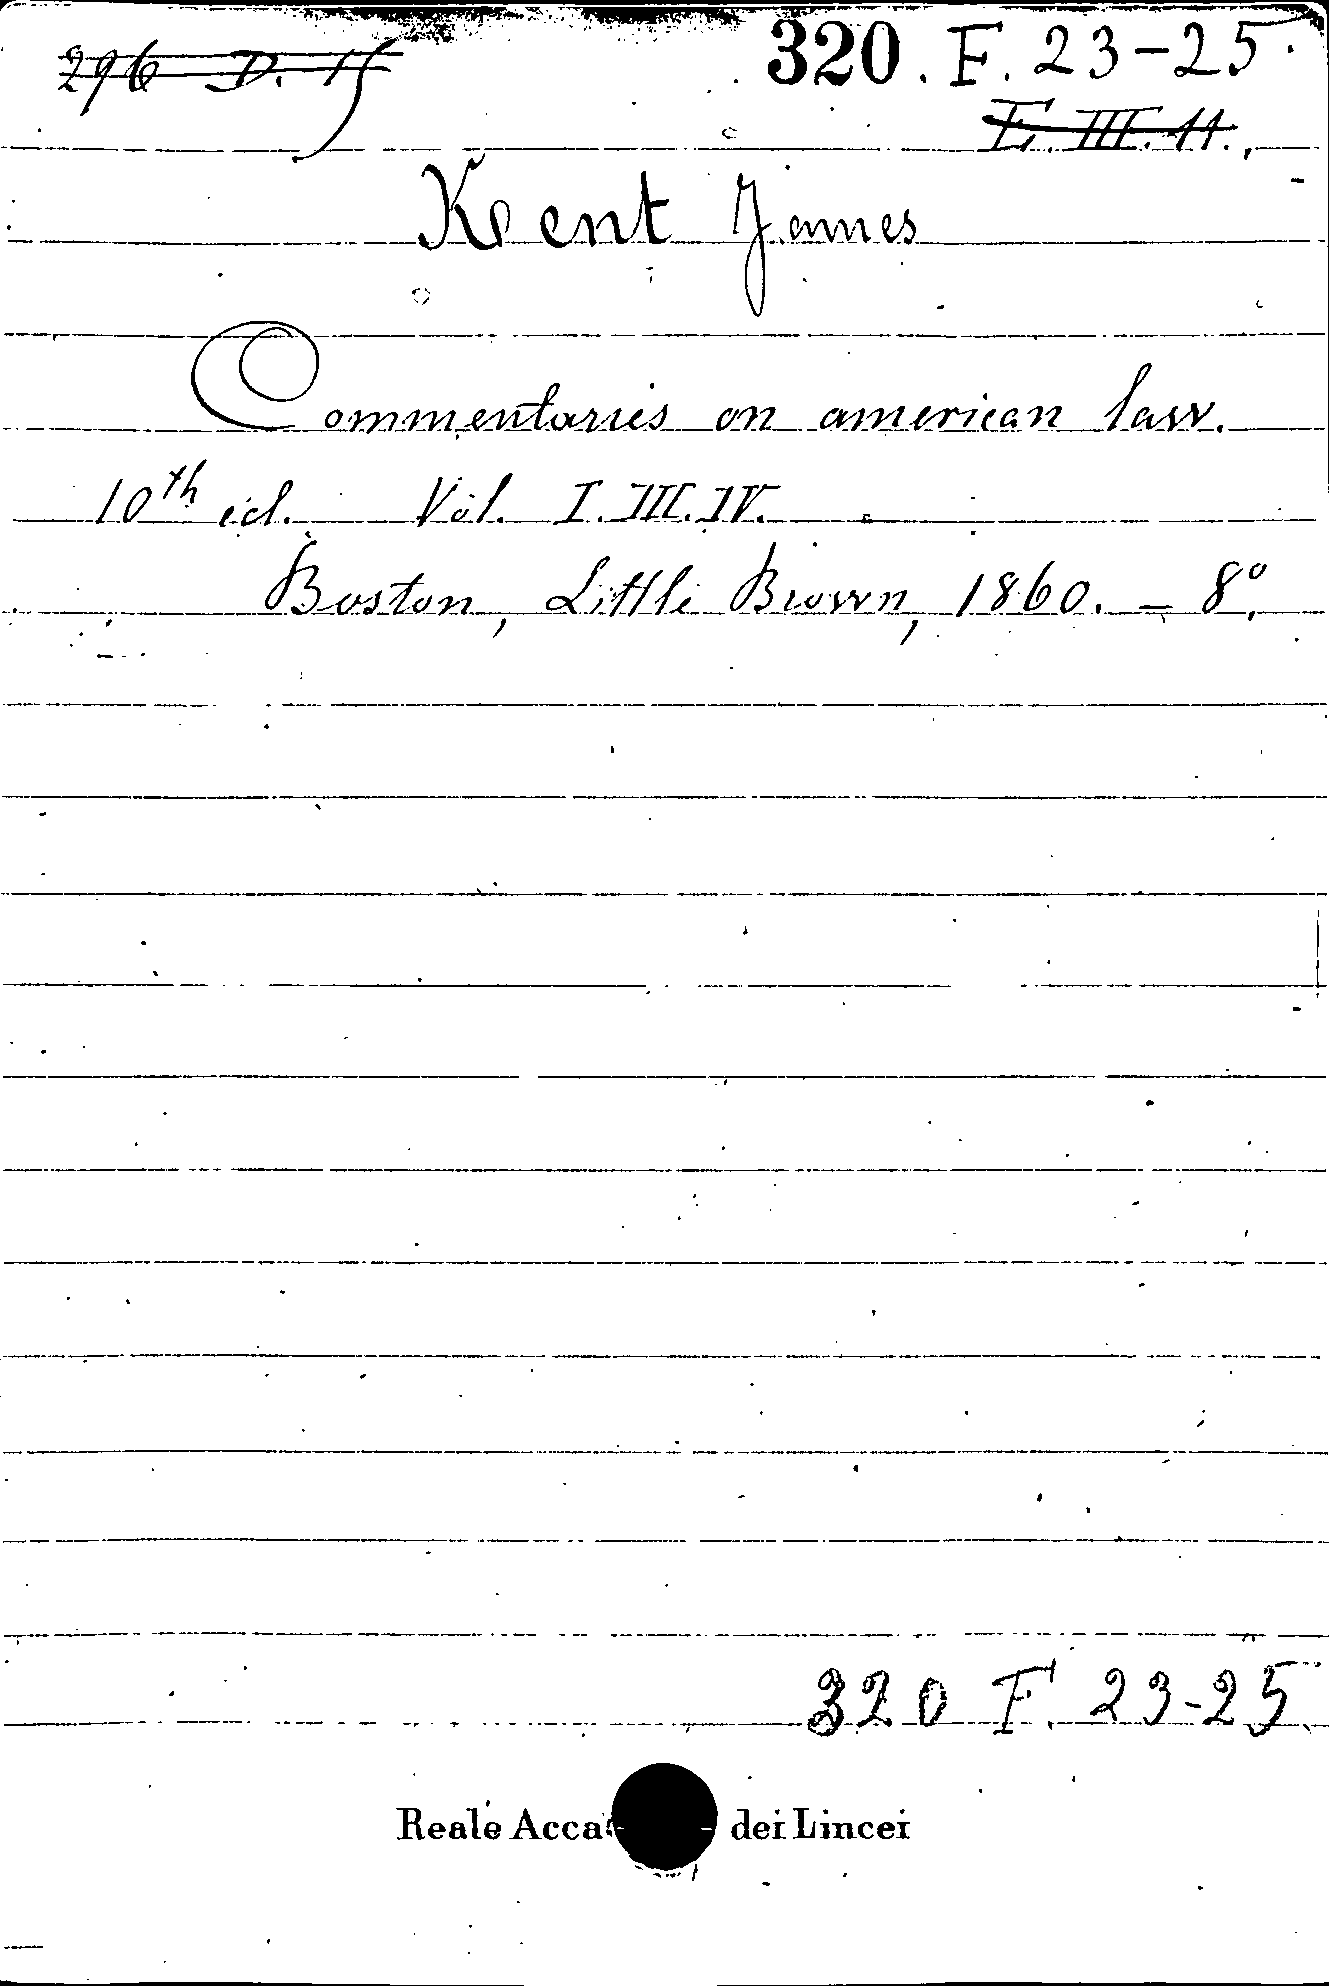 296 D. 15
320. F. 23-25.
E. III. 11.
Kent James
Commentaries on american law.
10th ed. Vol. I. III. IV.
Boston, Little Brown, 1860. - 8°.
320 F. 23-25.
Reale Acca dei Lincei